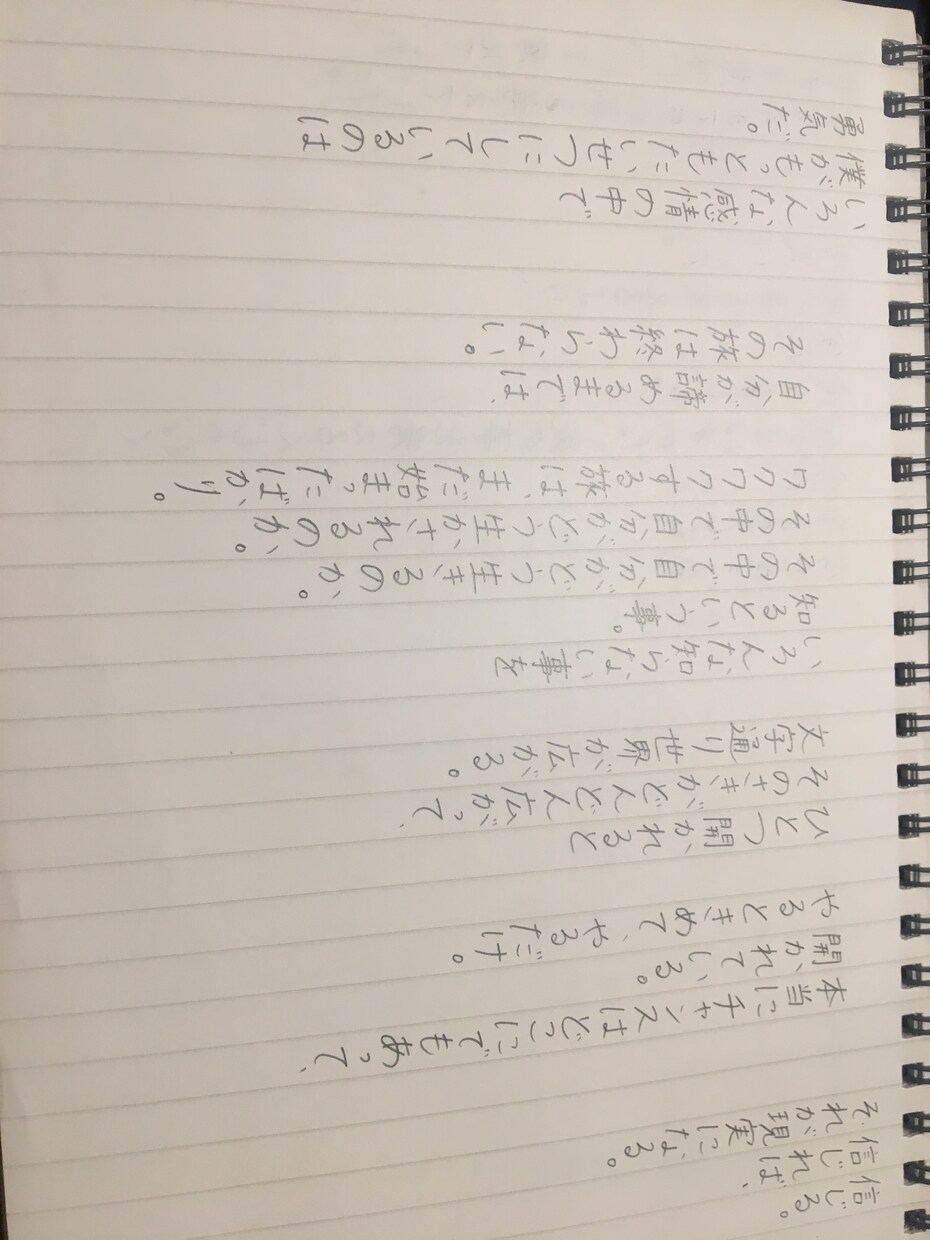 信じる。
信じれば、
それが現実になる。
本当にチャンスはどこにでもあって、
開かれている。
やるときめて、やるだけ。
ひとつ開かれると
そのさきがどんどん広がって、
文字通り世界が広がる。
いろんな知らない事を
知るという事。
その中で自分がどう生きるのか。
その中で自分がどう生かされるのか。
ワクワクする旅は、まだ始まったばかり。
自分が諦めるまでは、
その旅は終わらない。
いろんな感情の中で
僕がもっともたいせつにしているのは
勇気だ。